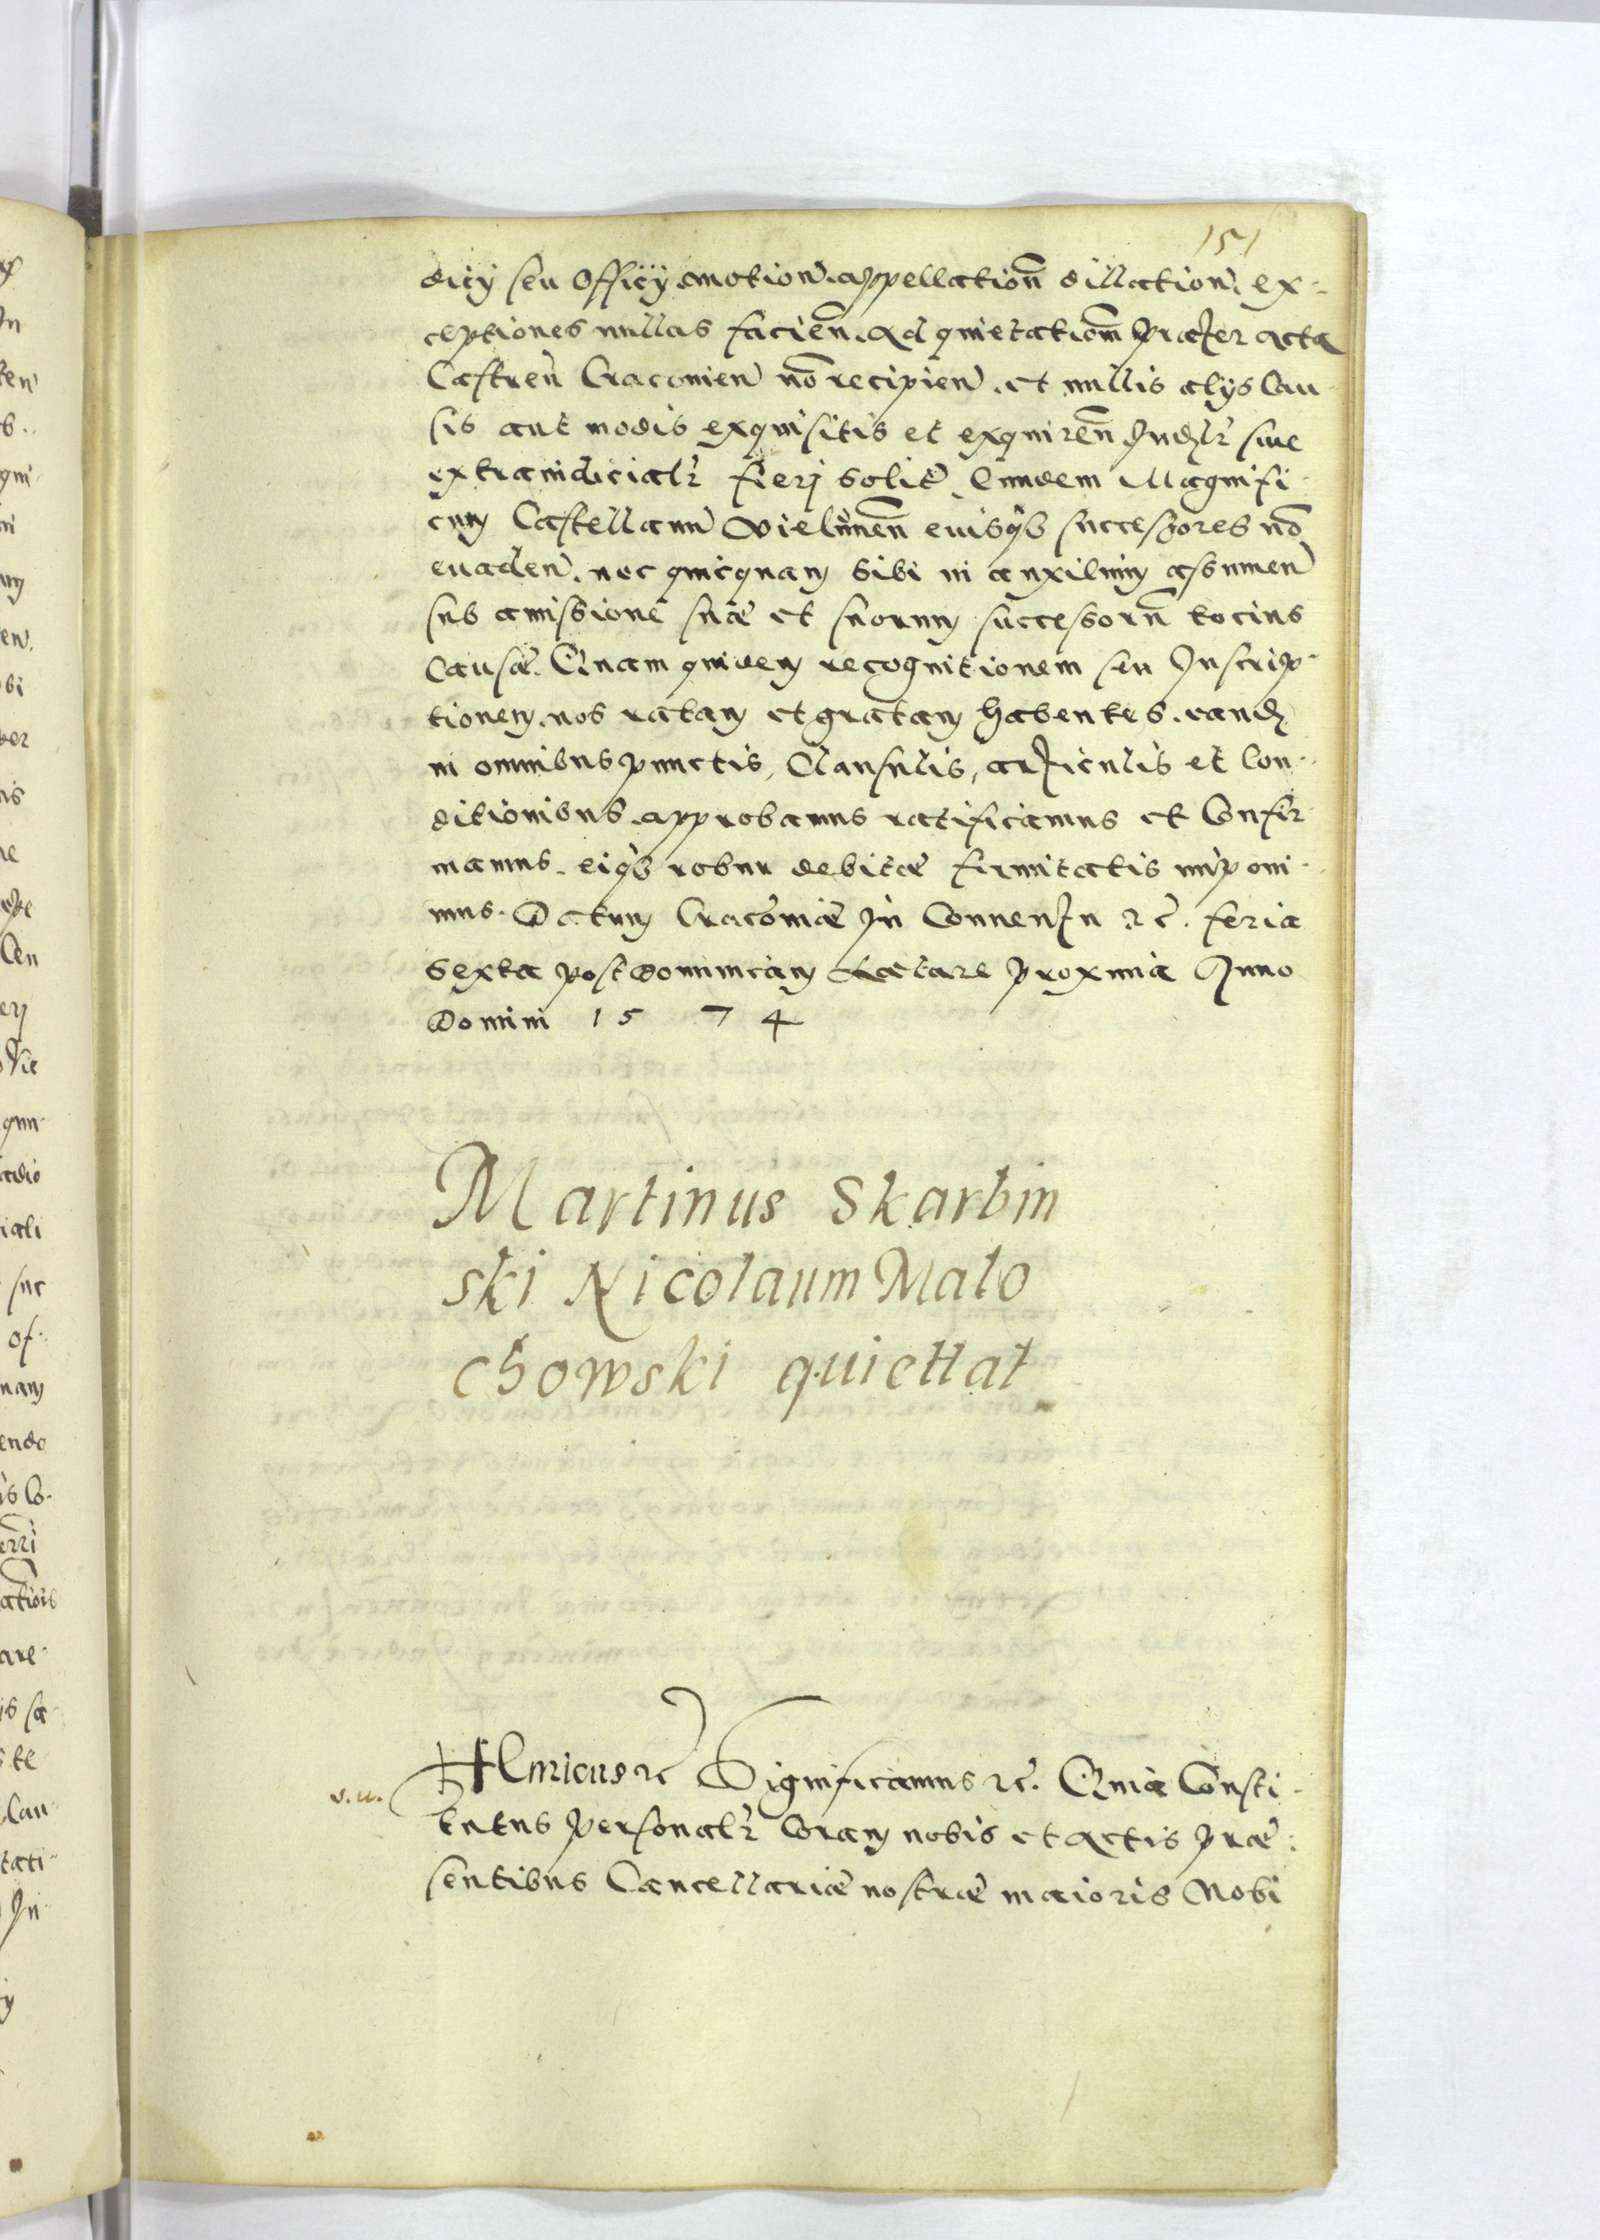 151
dicij seu Officij motion̄. appellation̄ dillation̄. ex-
ceptiones nullas facien̄. Ad quietation̄m praeter acta
Castren̄ Cracovien̄ nō recipien̄. et nullis alijs Cau-
sis aut modis exquisitis et exquiren̄ Judlr̄ siue
extraiudicialr̄ fierj solit̄. Eundem Magnifi-
cum Castellanū Vielunen̄ eiusq3 successores nō
euaden̄. nec quicquam sibi in auxilium assumen̄
sub amissione suae et suorum successorū tocius
Causae. Quam quidem recognitionem seu Inscrip-
tionem. nos ratam et gratam habentes. eand
in omnibus punctis, Clausulis, articulis et Con-
ditionibus. approbamus ratificamus et Confir-
mamus. eiq3 robur debitae firmitatis imponi-
mus. Datum Cracoviae In Conuentu &c. feria
Sexta post Dominicam Laetare proxima Anno
Domini 1574
Martinus Skarbin
ski Nicolaum Malo
chowski quiettat
s.u.
Henricus &c Significamus &c. Quia Consti-
tutus personalr̄ Coram nobis et actis prae-
sentibus Cancellariae nostrae maioris Nobi